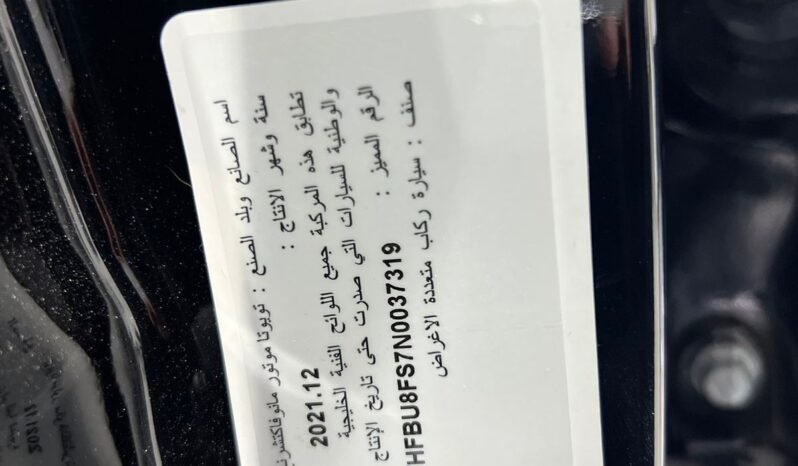 اسم الصانع وبلد الصنع : تويوتا موتور مانوفاكتشرنج
سنة وشهر الانتاج : 2021.12
تطابق هذه المركبة جميع اللوائح الفنية الخليجية
والوطنية للسيارات التي صدرت حتى تاريخ الإنتاج
الرقم المميز : HFBU8FS7N0037319
صنف : سيارة ركاب متعددة الاغراض